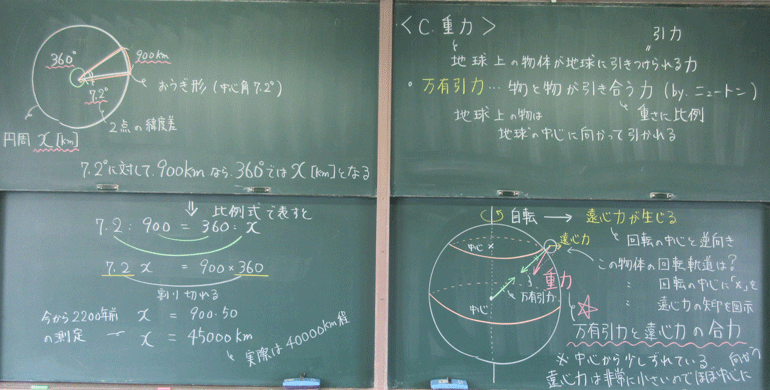 360°
900km
7.2°
おうぎ形(中心角7.2°)
2点の緯度差
円周 x[km]
7.2°に対して900kmなら、360°では x[km]となる
⇓ 比例式で表すと
7.2 : 900 = 360 : x
7.2 x = 900×360
割り切れる
今から2200年前の測定
x = 900・50
x = 45000km
実際は40000km程
<C. 重力>
引力
地球上の物体が地球に引きつけられる力
・万有引力… 物と物が引き合う力 (by. ニュートン)
重さに比例
地球上の物は
地球の中心に向かって引かれる
自転 → 遠心力が生じる
回転の中心と逆向き
中心 x
遠心力
この物体の回転軌道は?
〃 回転の中心に「x」を
〃 遠心力の矢印を図示
重力
万有引力
中心
☆
万有引力と遠心力の合力
※ 中心から少しずれている
遠心力は非常に小さいのでほぼ中心に
向かう